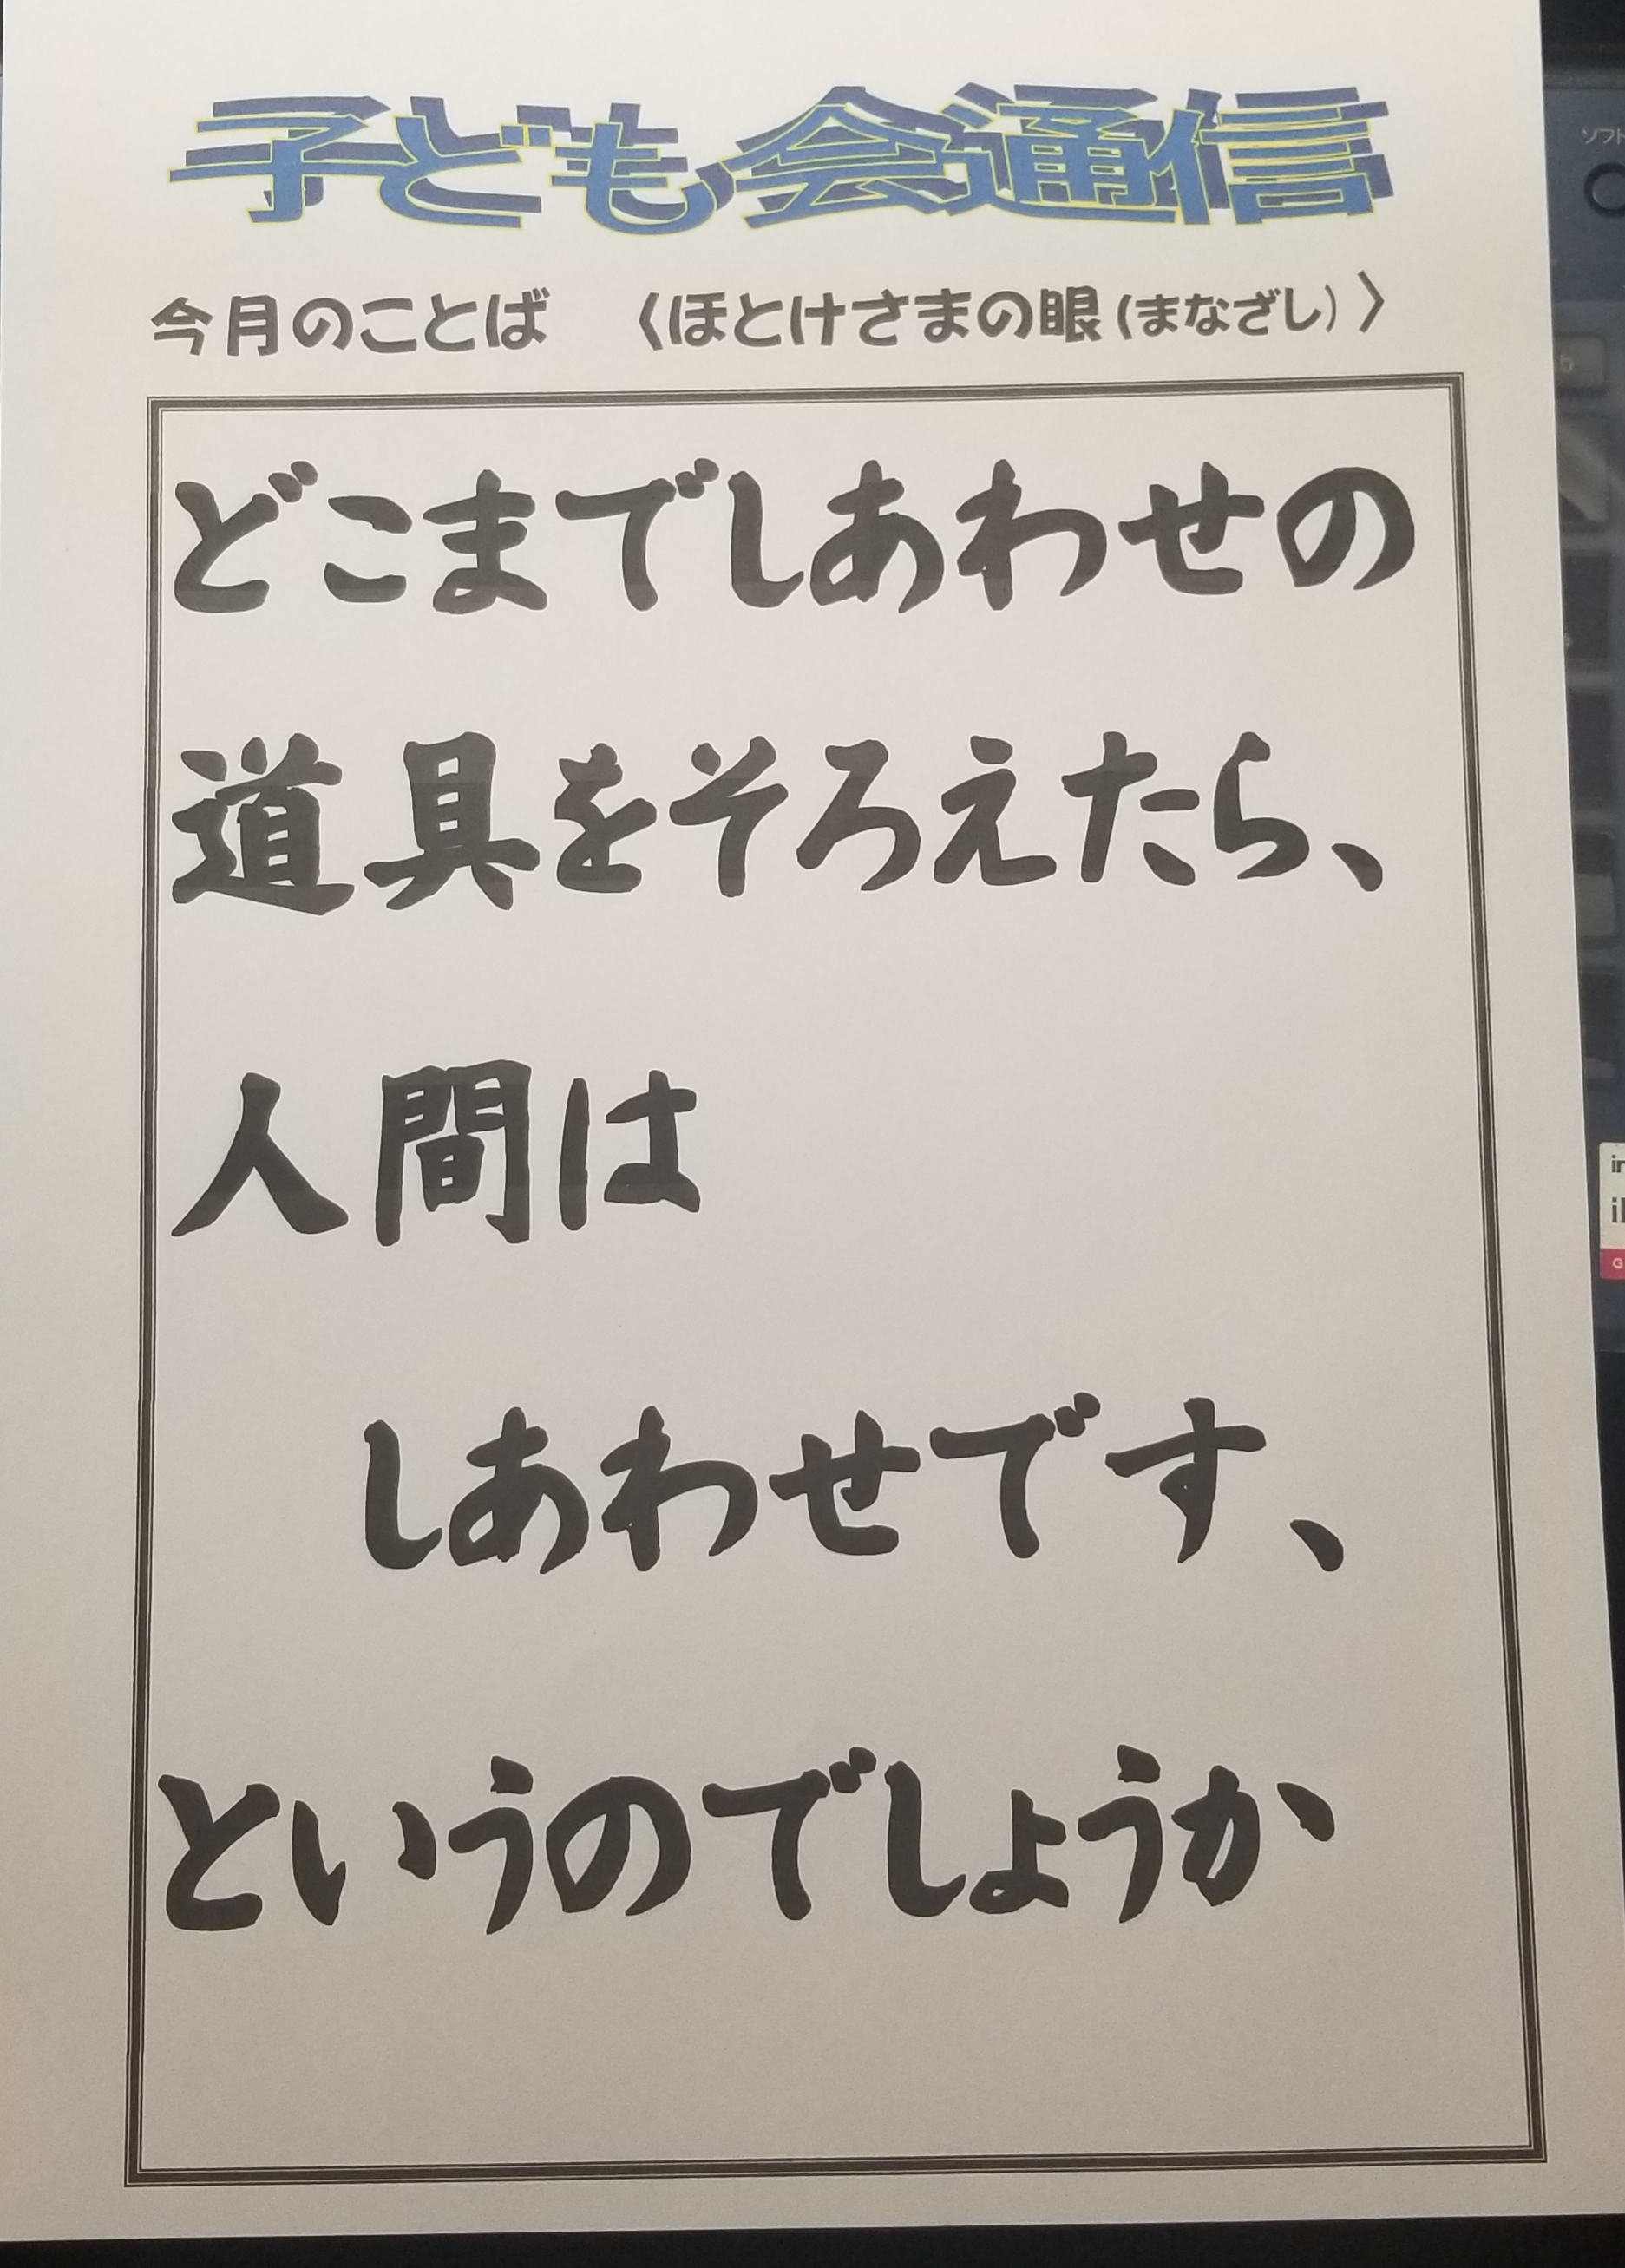 子ども会通信
今月のことば　〈ほとけさまの眼(まなざし)〉
どこまでしあわせの
道具をそろえたら、
人間は
しあわせです、
というのでしょうか
ソフト